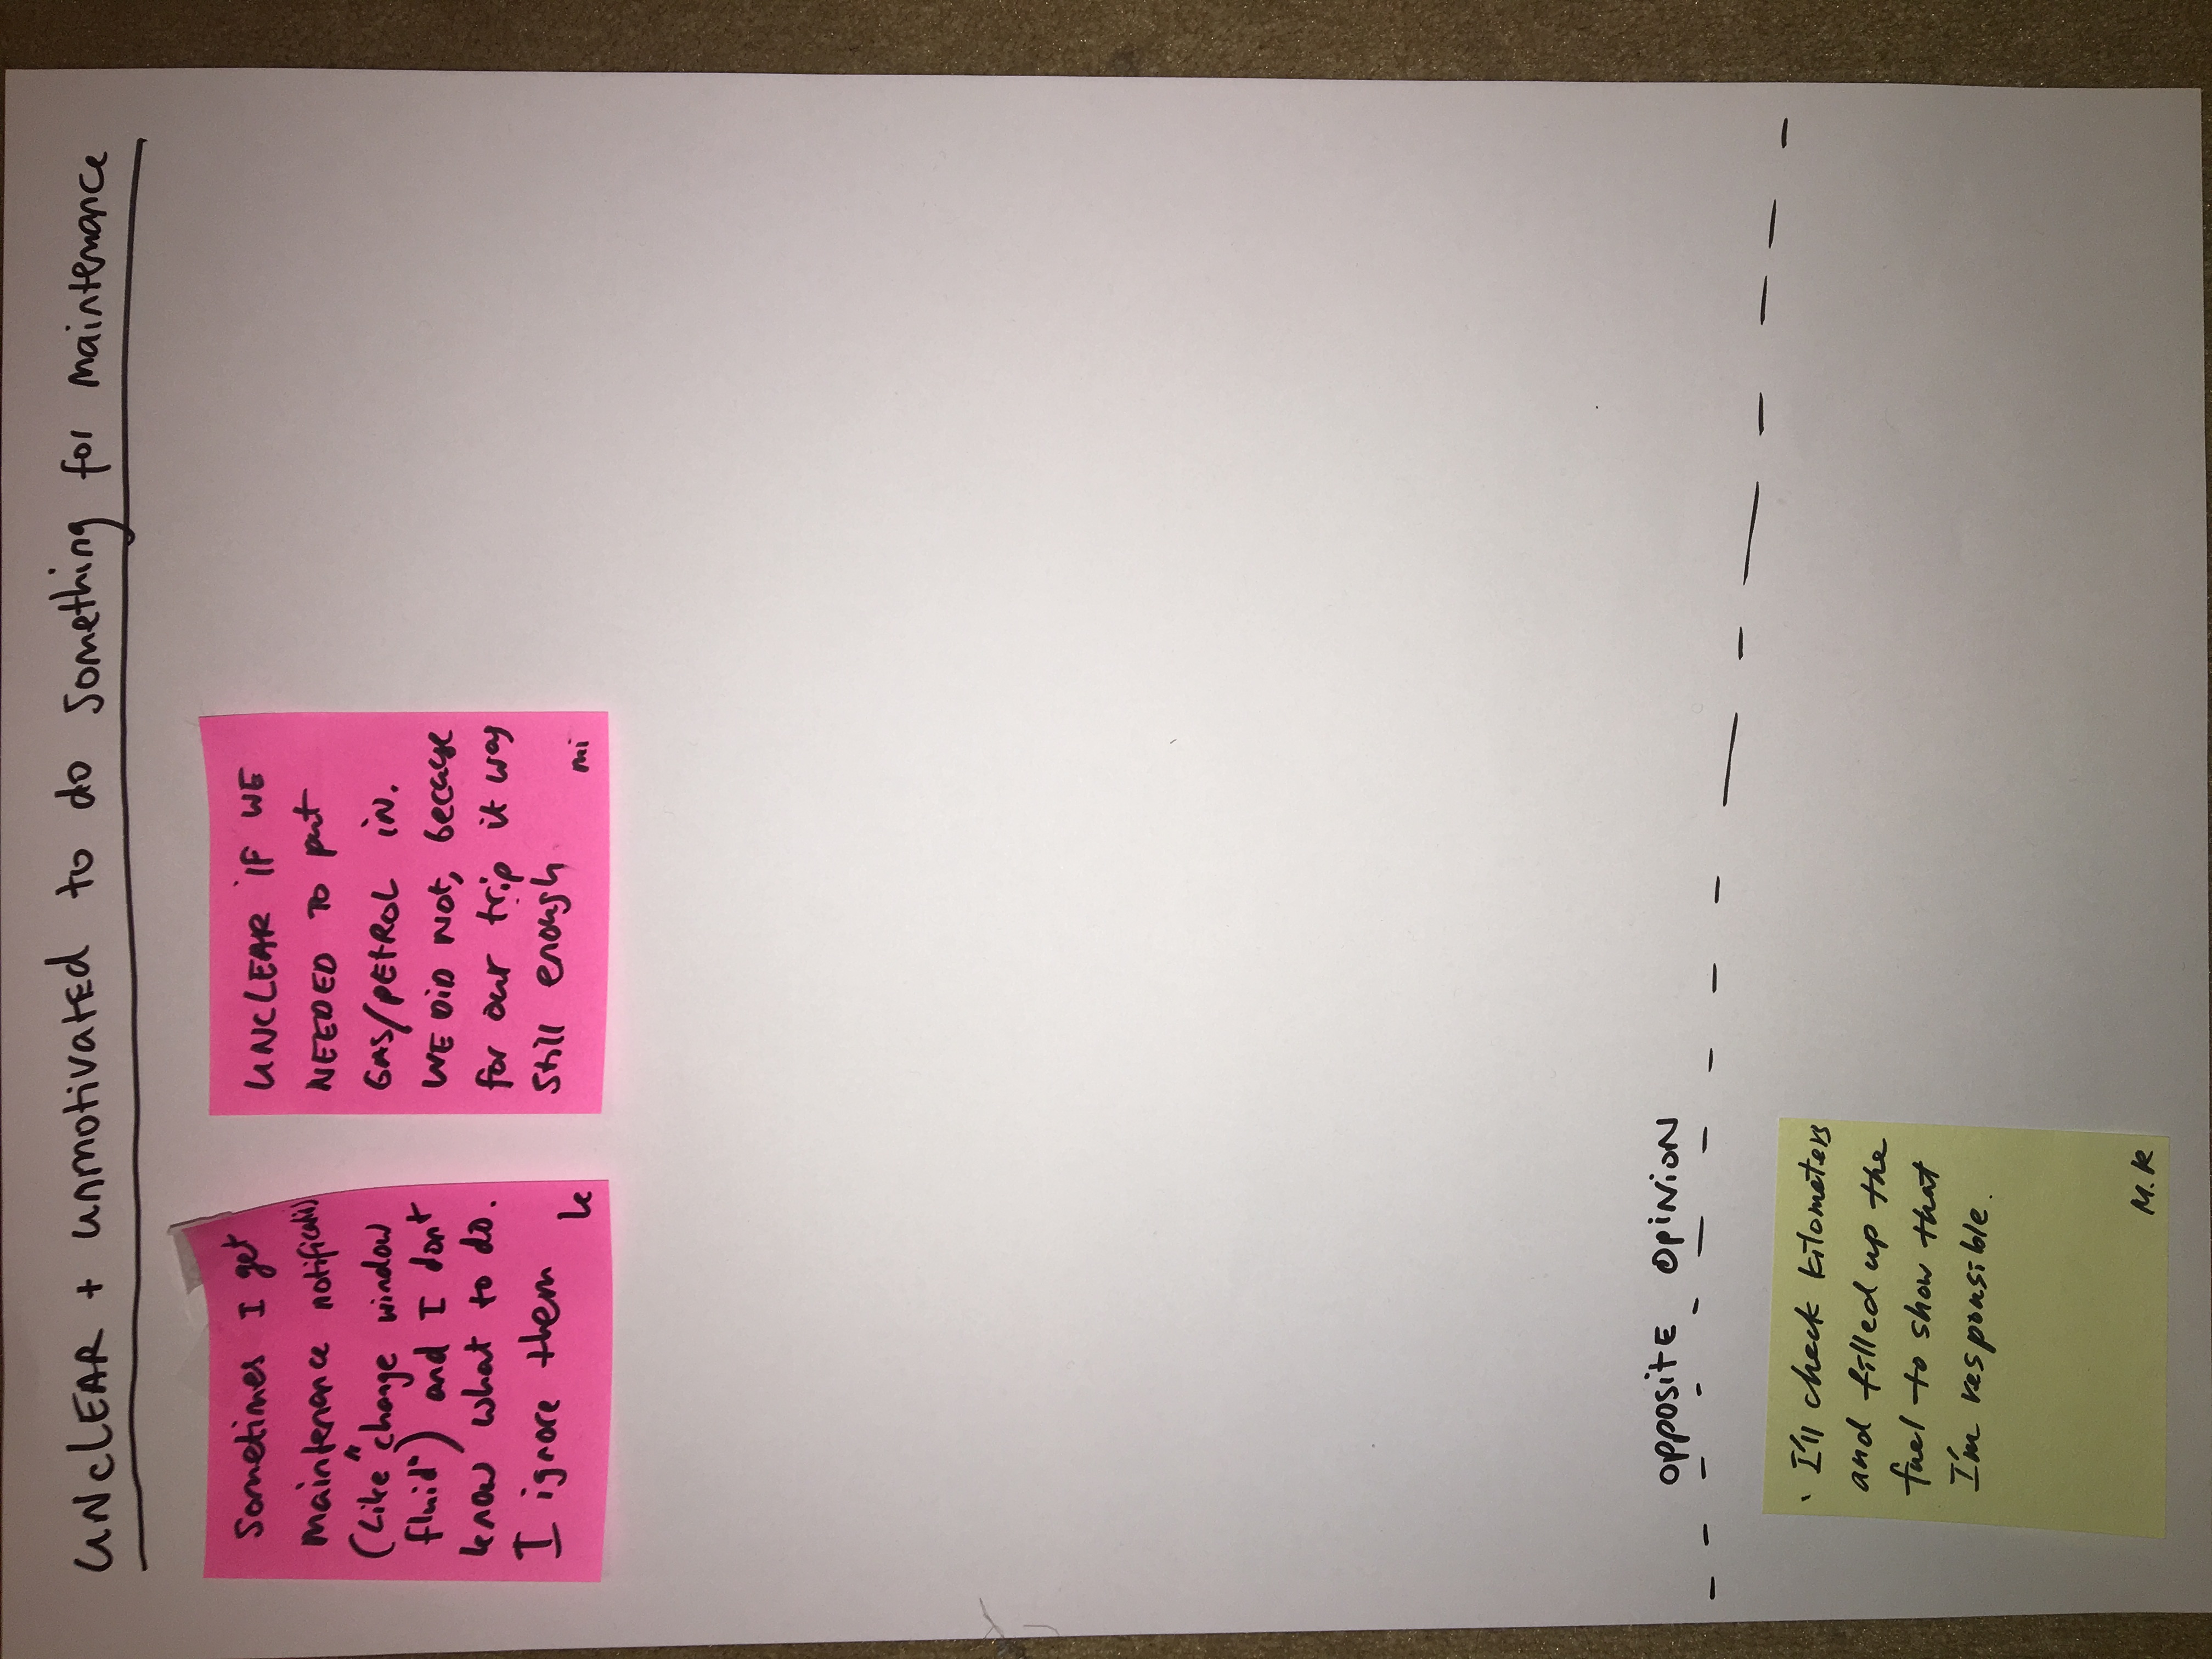 UNCLEAR + unmotivatED to do something for maintenance
Sometimes I get
maintenance
(Like "change window
fluid") and I don't
know what to do.
I ignore them
UNCLEAR IF WE
NEEDED TO put
GAS/PETROL iN.
WE DiD Not, because
for our trip it was
still enough
mi
OPPOSITE OPiNiON
I'll check kilometers
and filled up the
fuel to show that
I'm responsible.
M.R